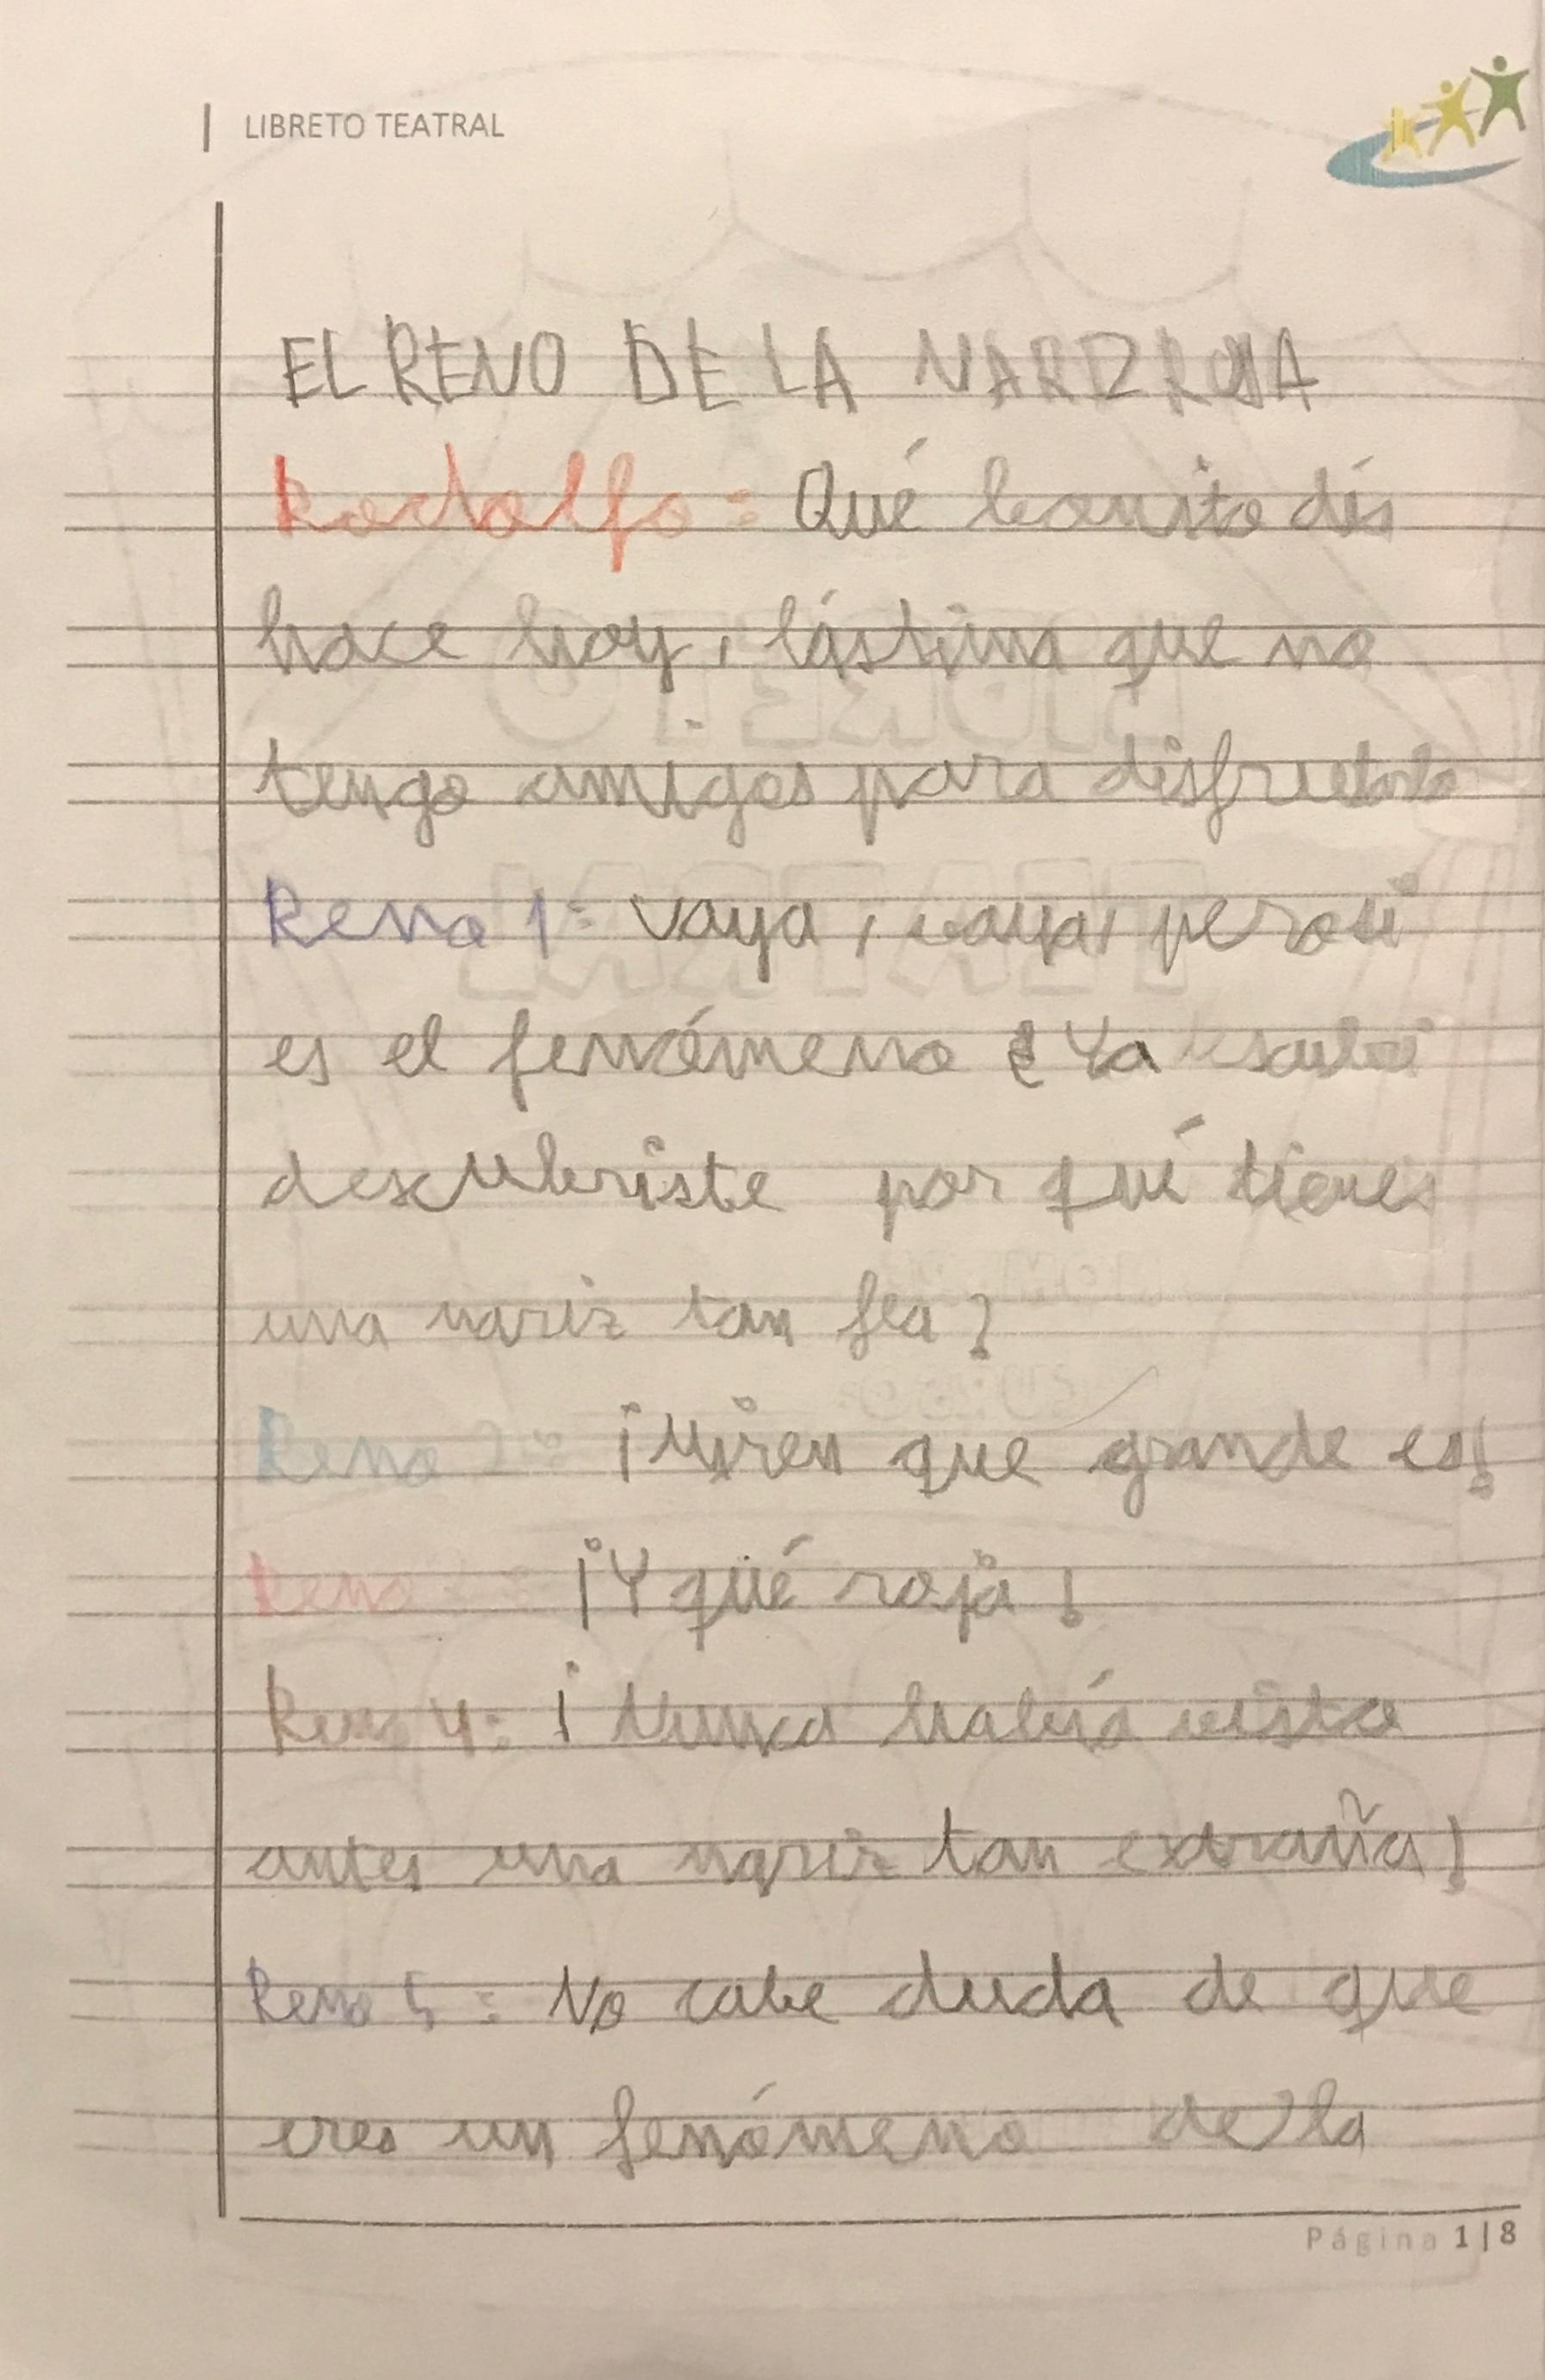 LIBRETO TEATRAL
EL RENO DE LA NARIZ ROJA
Rodolfo: Qué bonito día
hace hoy, lástima que no
tengo amigos para disfrutarlo
Reno 1: Vaya, vaya, pero si
es el fenómeno ¿Ya
descubriste por qué tienes
una nariz tan fea?
Reno 2: ¡Miren que grande es!
Reno : ¡Y qué roja!
Reno 4: ¡Nunca había visto
antes una nariz tan extraña!
Reno 5: No cabe duda de que
eres un fenómeno de la
Página 1|8